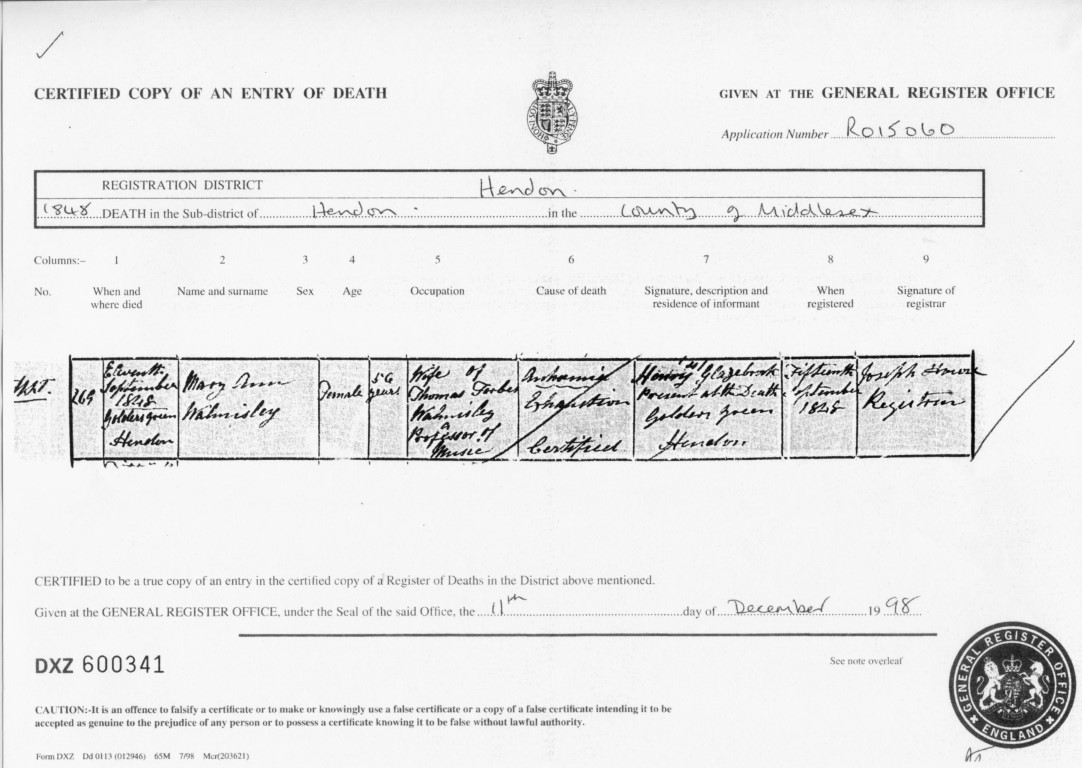 CERTIFIED COPY OF AN ENTRY OF DEATH
GIVEN AT THE GENERAL REGISTER OFFICE
Application Number R015060
REGISTRATION DISTRICT Hendon.
1848 DEATH in the Sub-district of Hendon. in the County of Middlesex
Columns:– 1 2 3 4 5 6 7 8 9
No. When and where died Name and surname Sex Age Occupation Cause of death Signature, description and residence of informant When registered Signature of registrar
269
Eleventh
September
1848
Golders green
Hendon
Mary Ann
Walmisley
Female
56
years
Wife of
Thomas Forbes
Walmisley
a
Professor of
Music
Exhaustion
Certified
Henry Glazebrook
Present at the Death
Golders green
Hendon
Fifteenth
September
1848
Joseph
Registrar
CERTIFIED to be a true copy of an entry in the certified copy of a Register of Deaths in the District above mentioned.
Given at the GENERAL REGISTER OFFICE, under the Seal of the said Office, the 11th day of December 1998
DXZ 600341
See note overleaf
GENERAL REGISTER OFFICE
ENGLAND
CAUTION:-It is an offence to falsify a certificate or to make or knowingly use a false certificate or a copy of a false certificate intending it to be
accepted as genuine to the prejudice of any person or to possess a certificate knowing it to be false without lawful authority.
Form DXZ Dd 0113 (012946) 65M 7/98 Mcr(203621)